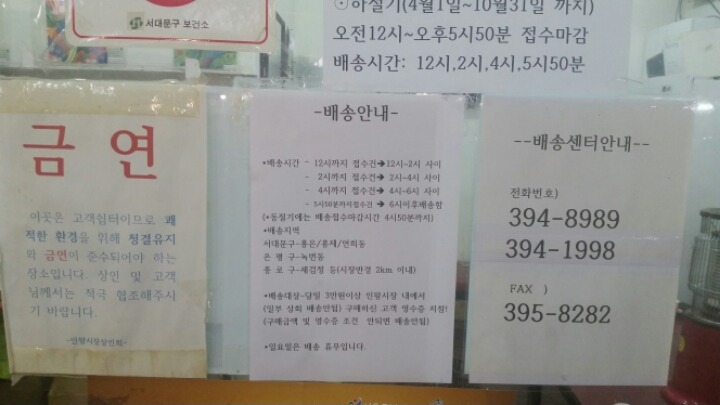 서대문구 보건소
⊙하절기(4월1일~10월31일 까지)
오전12시~오후5시50분 접수마감
배송시간: 12시,2시,4시,5시50분
금 연
이곳은 고객쉼터이므로 쾌
적한 환경을 위해 청결유지
와 금연이 준수되어야 하는
장소입니다. 상인 및 고객
님께서는 적극 협조해주시
기 바랍니다.
-인왕시장상인회-
-배송안내-
*배송시간 - 12시까지 접수건➔12시~2시 사이
- 2시까지 접수건➔2시~4시 사이
- 4시까지 접수건➔4시~6시 사이
- 5시50분까지접수건 ➔ 6시이후배송함
(*동절기에는 배송접수마감시간 4시50분까지)
*배송지역
서대문구-홍은/홍제/연희동
은 평 구-녹번동
종 로 구-세검정 등(시장반경 2km 이내)
*배송대상-당일 3만원이상 인왕시장 내에서
(일부 상회 배송안됨) 구매하신 고객 영수증 지참!
(구매금액 및 영수증 조건 안되면 배송안됨)
*일요일은 배송 휴무입니다.
--배송센터안내--
전화번호)
394-8989
394-1998
FAX )
395-8282